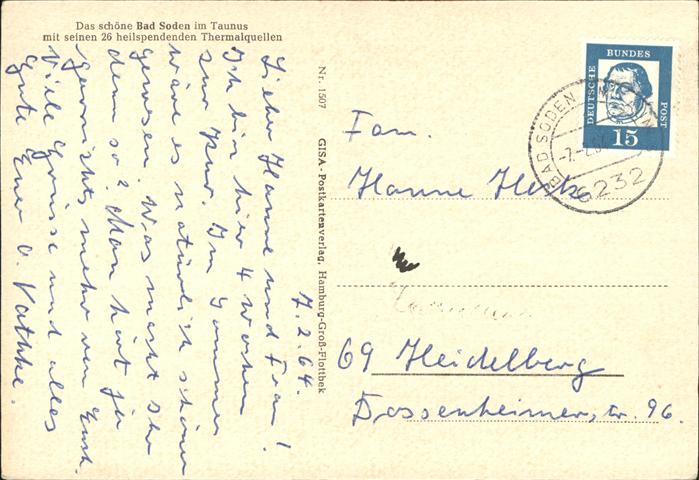 Das schöne Bad Soden im Taunus
mit seinen 26 heilspendenden Thermalquellen
7.2.64.
Liebe Hanne und Frau!
Ich bin hier 4 Wochen
zur Kur. Im Sommer
wäre es natürlich schöner
gewesen. Was macht Ihr
denn so? Man hört ja
garnichts mehr von Euch.
Viele Grüsse und alles
Gute Euer O. Kathke.
Nr. 1507
GISA-Postkartenverlag, Hamburg-Groß-Flottbek
DEUTSCHE BUNDES POST
15
BAD SODEN
-7.-2.64
6232
Fam.
Hanne
69 Heidelberg
Dossenheimerstr. 96.